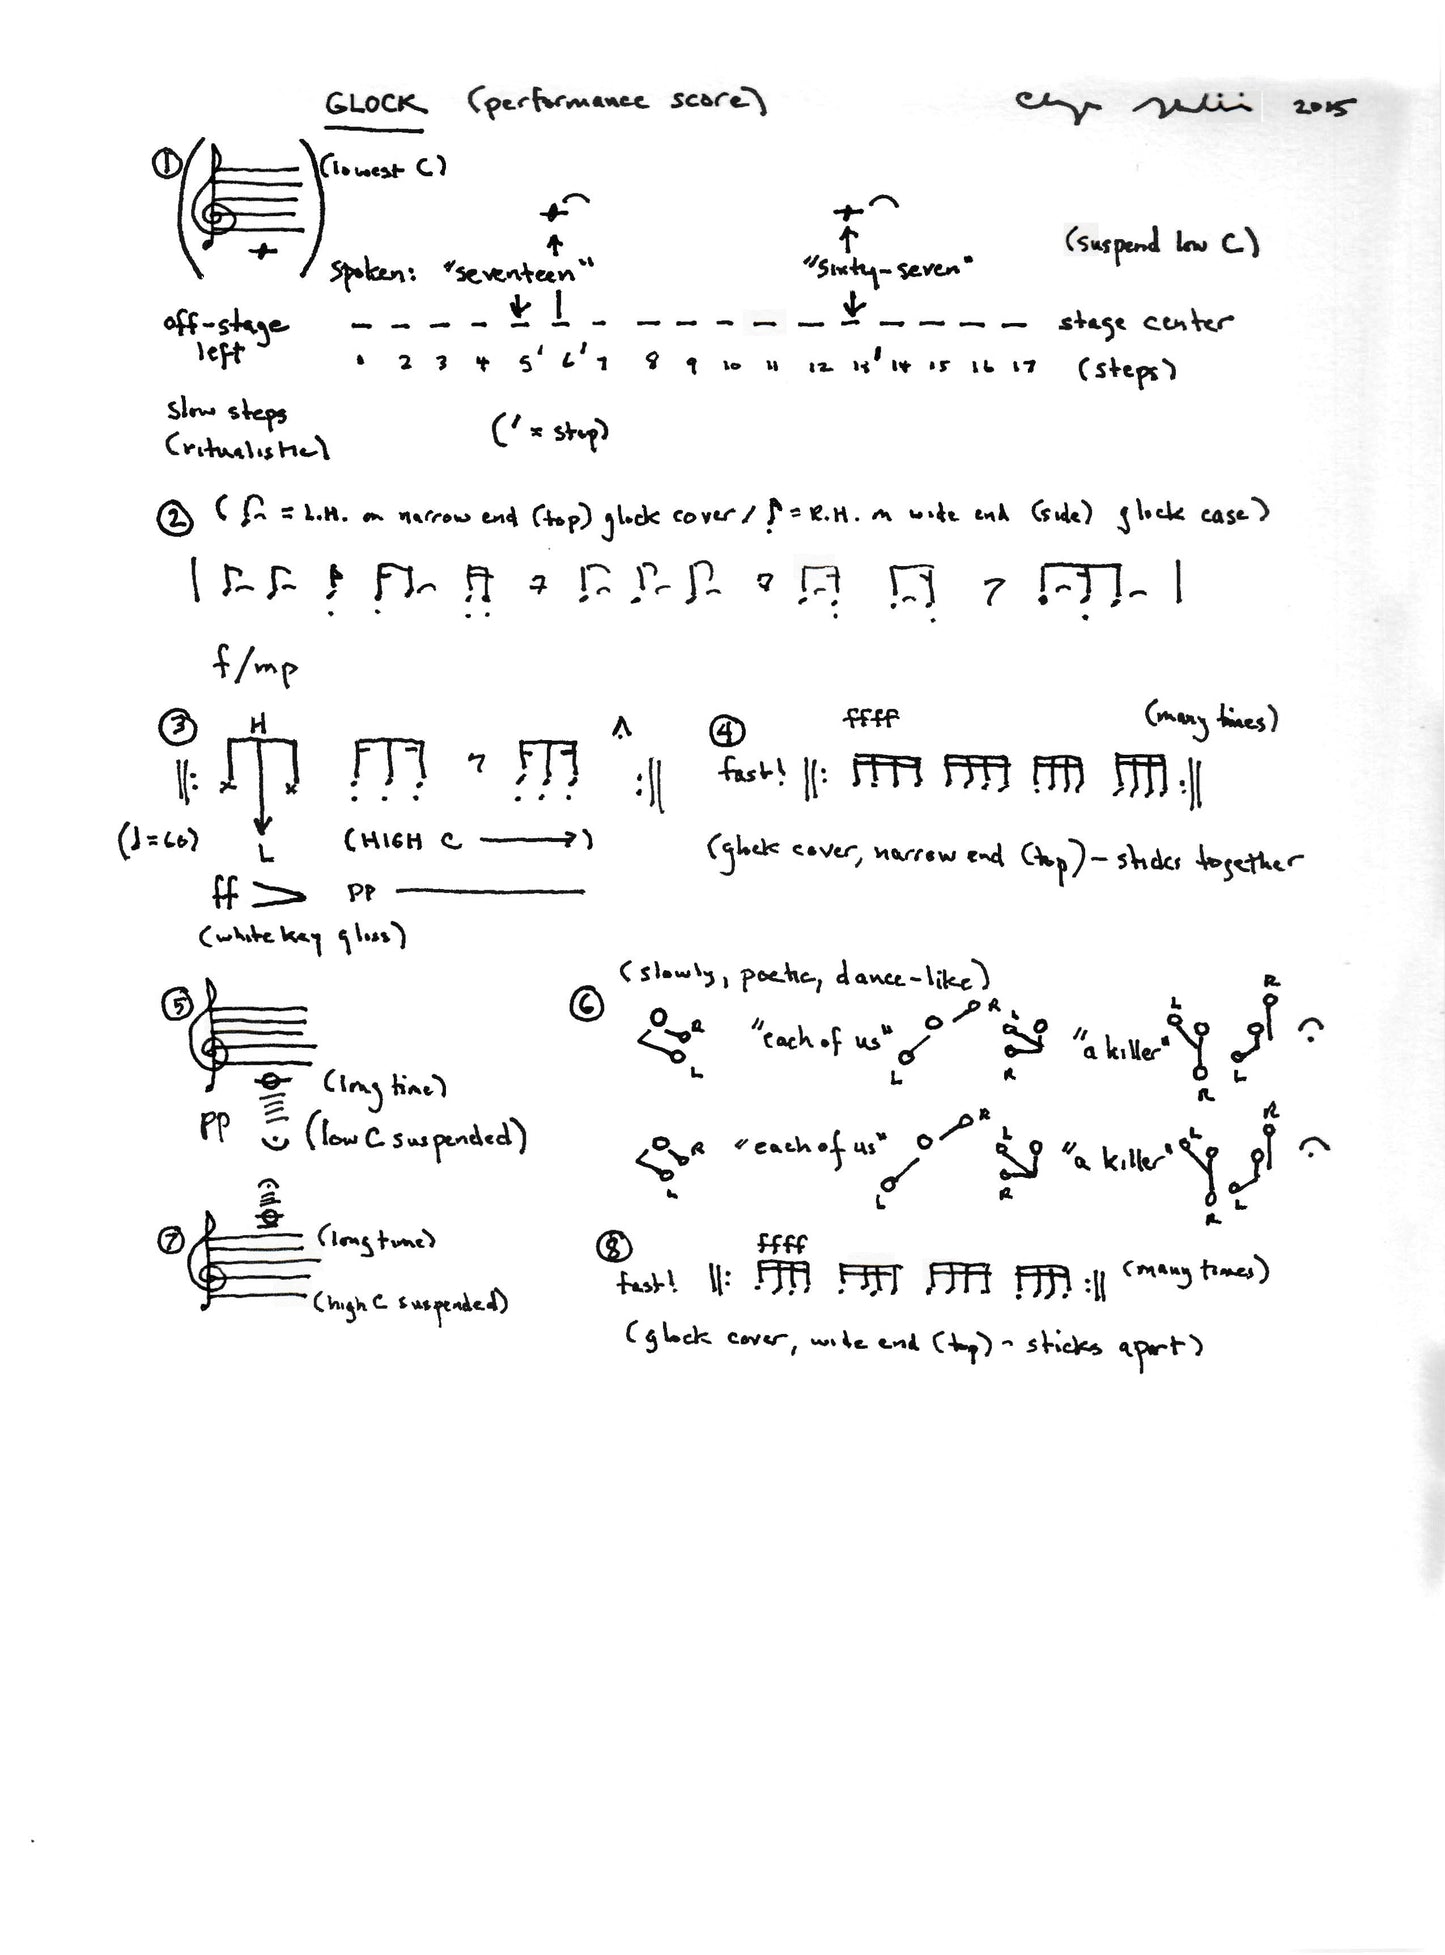 GLOCK (performance score)
2015
① (lowest C)
(suspend low C)
spoken: "seventeen" "sixty-seven"
off-stage left stage center
1 2 3 4 5' 6' 7 8 9 10 11 12 13' 14 15 16 17 (steps)
slow steps
(ritualistic) (' = stop)
② ( = L.H. on narrow end (top) glock cover / = R.H. on wide end (side) glock case)
f/mp
③ H
(♩=60) L (HIGH C →)
ff > pp
(white key gliss)
④ ffff (many times)
fast!
(glock cover, narrow end (top) - sticks together
⑤
(long time)
pp (low C suspended)
⑥ (slowly, poetic, dance-like)
R L "each of us" L R L R "a killer" L R L R
R L "each of us" L R L R "a killer" L R L R
⑦ (long time)
(high C suspended)
⑧ ffff
fast! (many times)
(glock cover, wide end (top) - sticks apart)